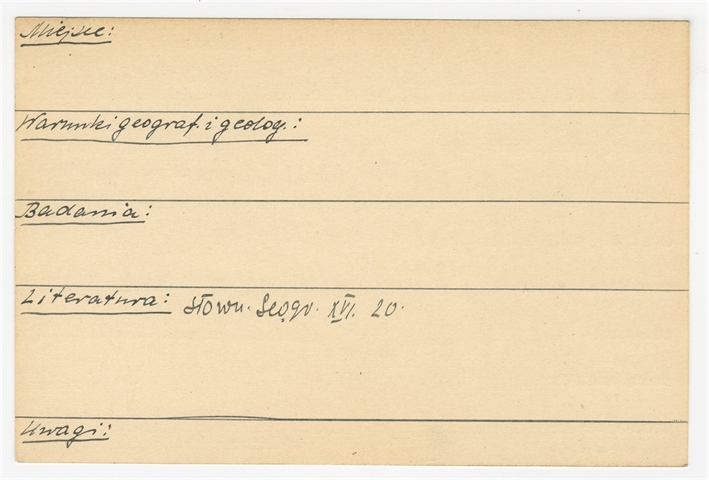 Miejsce:
Warunki geograf. i geolog.:
Badania:
Literatura: Słown. Geogr. XVI. 20.
Uwagi: